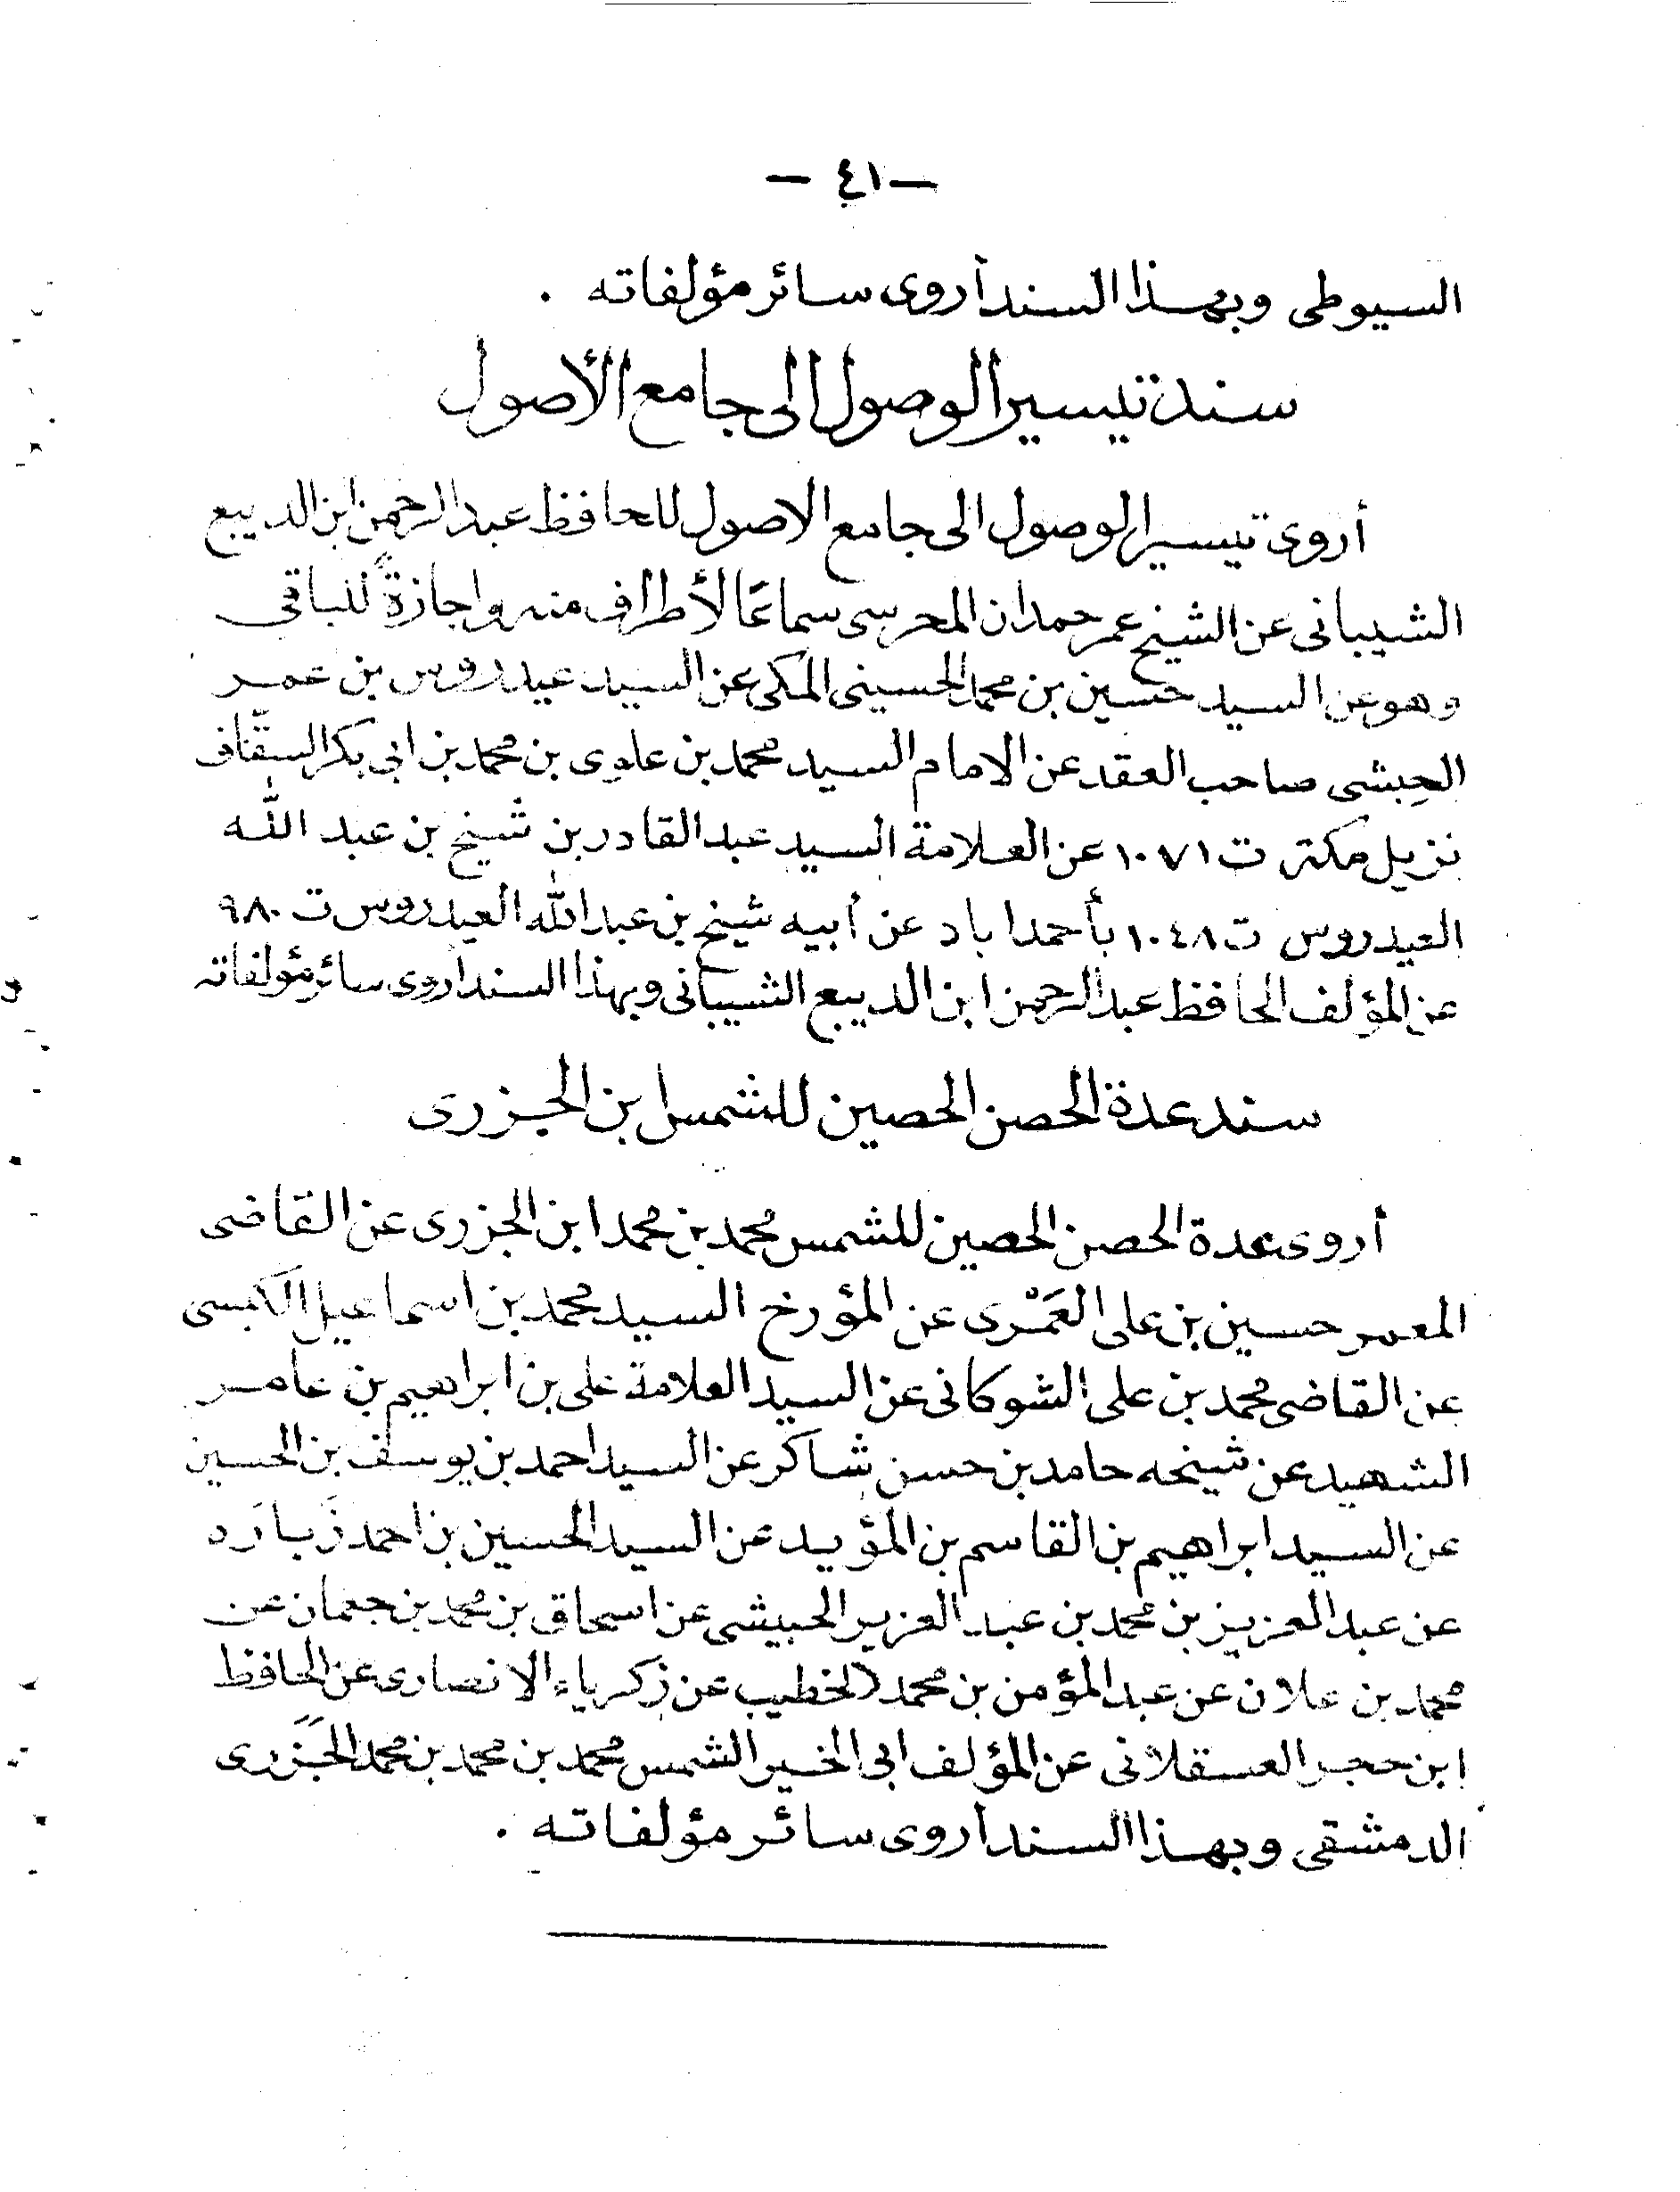 — ٤١ —
السيوطى وبهذا السند أروى سائر مؤلفاته .
سند تيسير الوصول الى جامع الأصول
أروى تيسير الوصول الى جامع الاصول للحافظ عبد الرحمن ابن الديبع
الشيبانى عن الشيخ عمر حمدان المحرسى سماعًا لأطراف منه واجازةً للباقى
وهو عن السيد حسين بن محمد الحسينى المكى عن السيد عيدروس بن عمر
الحبشى صاحب العقد عن الامام السيد محمد بن علوى بن محمد بن ابى بكر السقّاف
نزيل مكة ت ١٠٧١ عن العلامة السيد عبد القادر بن شيخ بن عبد الله
العيدروس ت ١٠٤٨ بأحمد اباد عن أبيه شيخ بن عبد الله العيدروس ت ٩٨٠
عن المؤلف الحافظ عبد الرحمن ابن الديبع الشيبانى وبهذا السند أروى سائر مؤلفاته
سند عدة الحصن الحصين للشمس ابن الجزرى
أروى عدة الحصن الحصين للشمس محمد بن محمد ابن الجزرى عن القاضى
المعمر حسين بن على العَمْرى عن المؤرخ السيد محمد بن اسماعيل الكبسى
عن القاضى محمد بن على الشوكانى عن السيد العلامة على بن ابراهيم بن عامر
الشهيد عن شيخه حامد بن حسن شاكر عن السيد احمد بن يوسف بن الحسين
عن السيد ابراهيم بن القاسم بن المؤيد عن السيد الحسين بن احمد زَبارَه
عن عبد العزيز بن محمد بن عبد العزيز الحبيشى عن اسحاق بن محمد بن جعمان عن
محمد بن علان عن عبد المؤمن بن محمد الخطيب عن زكرياء الانصارى عن الحافظ
ابن حجر العسقلانى عن المؤلف ابى الخير الشمس محمد بن محمد بن محمد الجَزَرى
الدمشقى وبهذا السند أروى سائر مؤلفاته .